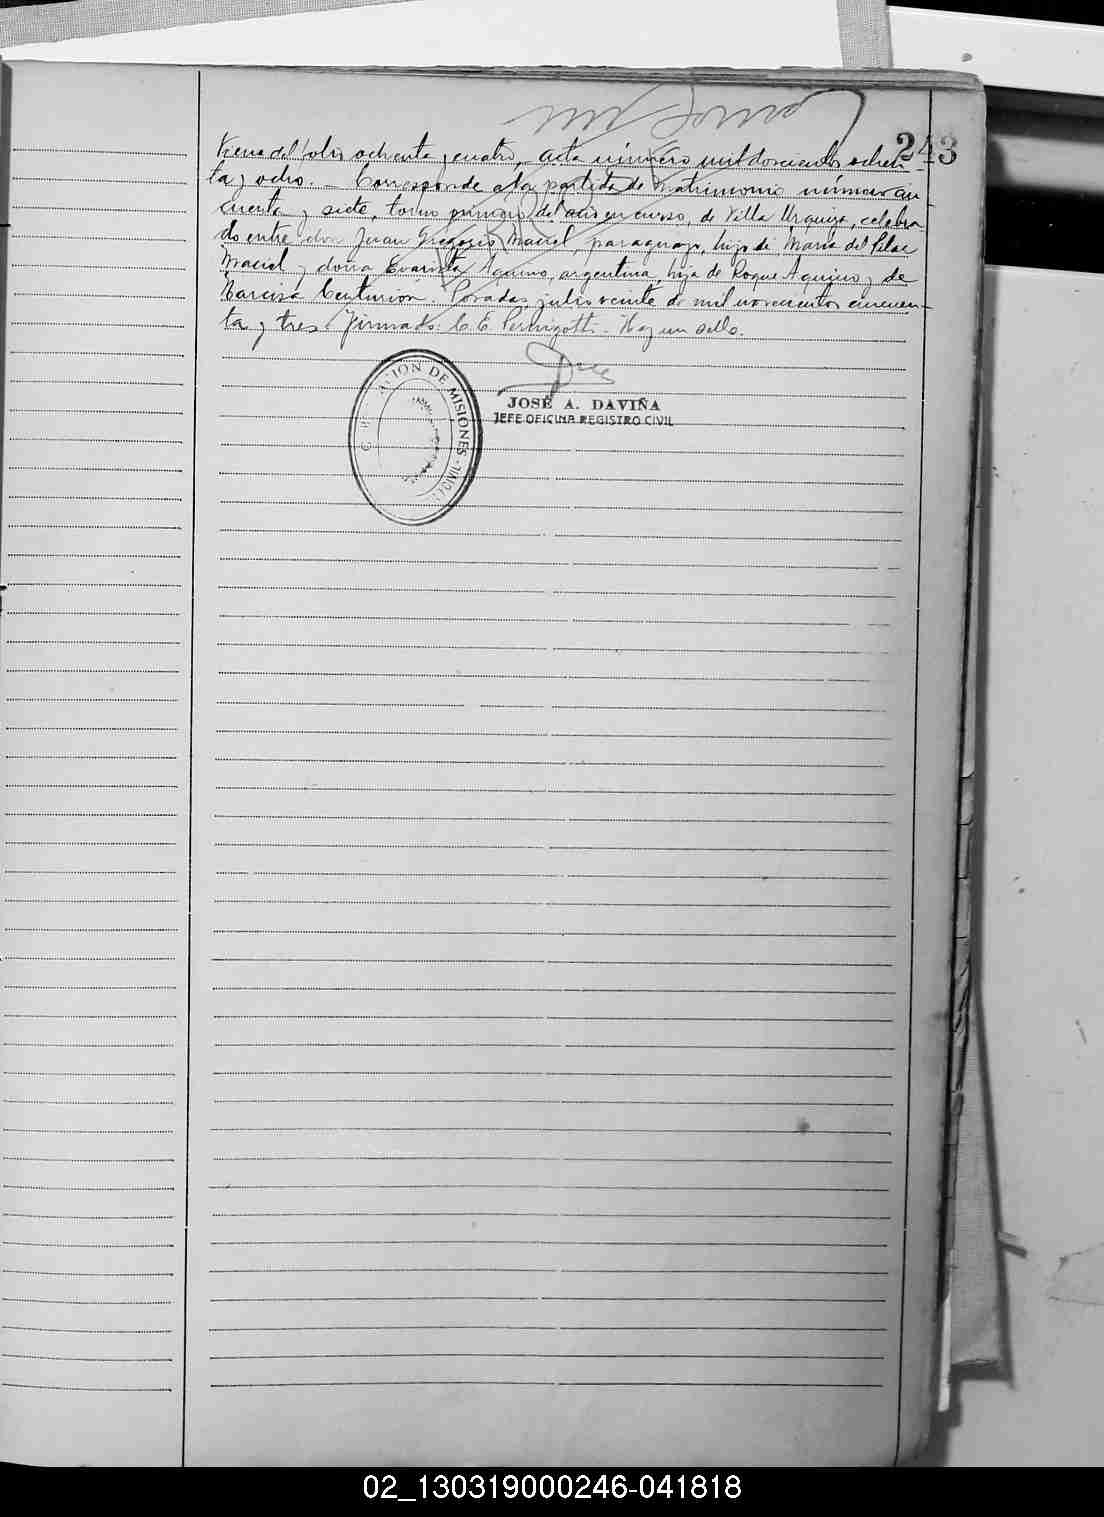 243
Viene del folio ochenta y cuatro, acta número mil doscientos ochen
ta y ocho. - Corresponde a la partida de matrimonio número cin
cuenta y siete, tomo primero del año en curso, de Villa Urquiza, celebra
do entre don Juan Gregorio Maciel, paraguayo, hijo de María del Pilar
Maciel y doña Evarista Aquino, argentina, hija de Roque Aquino y de
Narcisa Centurión. Posadas, julio veinte de mil novecientos cincuen-
ta y tres. Firmado: C. E. Hay un sello.
JOSÉ A. DAVIÑA
JEFE OFICINA REGISTRO CIVIL
DE MISIONES
02_130319000246-041818